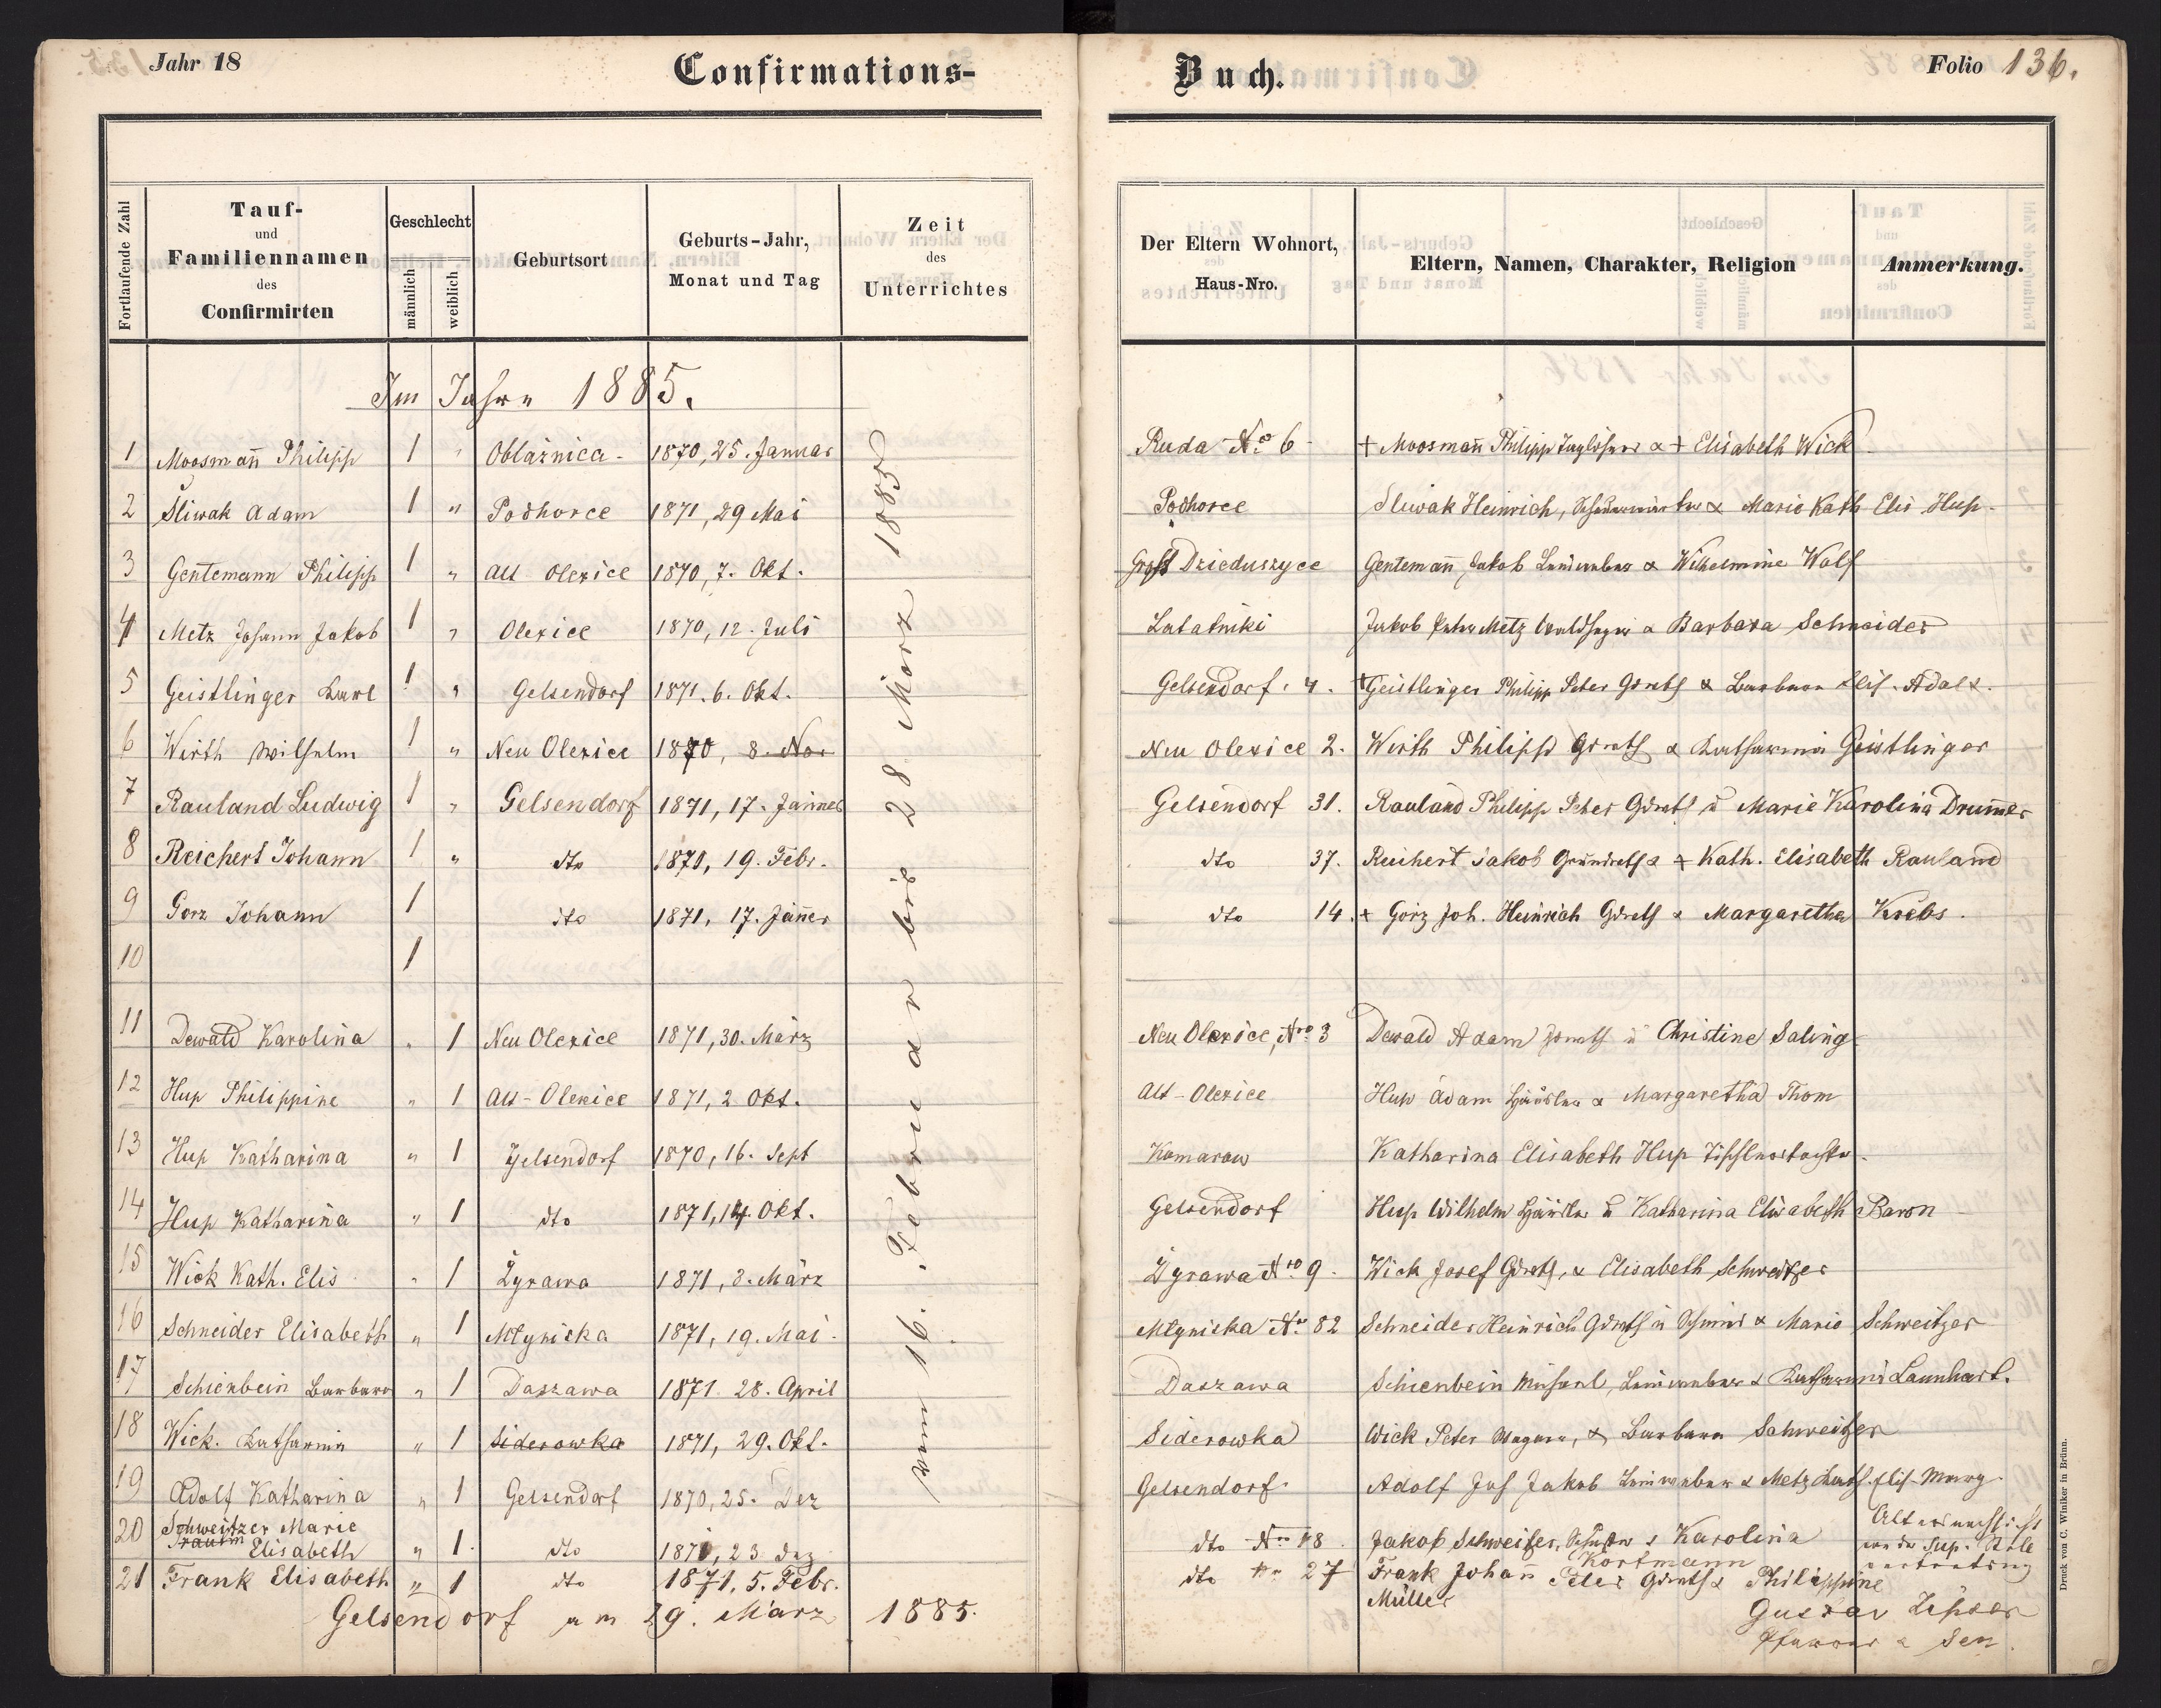 Jahr 18
Confirmations-
Buch.
Folio 136.
Fortlaufende Zahl
Tauf-
und
Familiennamen
des
Confirmirten
Geschlecht
männlich
weiblich
Geburtsort
Geburts-Jahr,
Monat und Tag
Zeit
des
Unterrichtes
Der Eltern Wohnort,
Haus-Nro.
Eltern, Namen, Charakter, Religion
Anmerkung.
Im Jahre 1885.
vom 16. Februar bis 28 März 1885
1 Moosmañ Philipp 1 " Oblaźnica 1870, 25. Januar Ruda No 6 + Moosmañ Philipp Taglöhner & + Elisabeth Wick
2 Sliwak Adam 1 " Podhorce 1871, 29 Mai Podhorce Sliwak Heinrich, & Marie Kath Elis Hup.
3 Gentemann Philipp 1 " Alt Olexice 1870, 7. Okt. Groß Dzieduszyce Gentemañ Jakob Leinweber & Wilhelmine Wolf
4 Metz Johann Jakob 1 " Olexice 1870, 12. Juli Latatniki Jakob Peter Metz Waldheger & Barbara Schneider
5 Geistlinger Karl 1 " Gelsendorf 1871. 6. Okt. Gelsendorf 4. + Geistlinger Philipp Peter Grndth & Barbara Elis. Adolf.
6 Wirth Wilhelm 1 " Neu Olexice 1870, 8. Nov Neu Olexice 2. Wirth Philipp Grndth & Katharina Geistlinger
7 Rauland Ludwig 1 " Gelsendorf 1871, 17. Jänner Gelsendorf 31. Rauland Philipp Peter Gdrndth u Marie Karolina Drum̄er
8 Reichert Johann 1 " dto 1870, 19. Febr. dto 37. Reichert Jakob & + Kath. Elisabeth Rauland
9 Gorz Johann 1 dto 1871, 17. Jan̄er dto 14. + Görz Joh. Heinrich Gdrndth & Margaretha Krebs.
10 1
11 Dewald Karolina " 1 Neu Olexice 1871, 30. März Neu Olexice, Nro 3 Dewald Adam Grndth u Christine Saling
12 Hup Philippine " 1 Alt-Olexice 1871, 2 Okt. Alt-Olexice Hup Adam Häusler & Margaretha Thom
13 Hup Katharina " 1 Gelsendorf 1870, 16. Sept Komarow Katharina Elisabeth Hup Tischlerstochter.
14 Hup Katharina " 1 dto 1871, 14. Okt. Gelsendorf Hup Wilhelm Häusler u Katharina Elisabeth Baron
15 Wick Kath. Elis " 1 Żyrawa 1871, 3. März Żyrawa Nro 9. Wick Josef Gdrndth, & Elisabeth Schweitzer
16 Schneider Elisabeth " 1 Młyniska 1871, 19. Mai. Młyniska No 82 Schneider Heinrich Gdrndth u Schmied & Marie Schweitzer
17 Schienbein Barbara " 1 Daszawa 1871 28. April Daszawa Schienbein Michael, Leinweber & Katharina Launhart.
18 Wick. Katharina " 1 Siderowka 1871, 29. Okt. Siderowka Wick Peter Wagner, & Barbara Schweitzer
19 Adolf Katharina " 1 Gelsendorf 1870, 25. Dez Gelsendorf. Adolf Joh Jakob Leinweber & Metz Kath. Elis. Marg.
20 Schweitzer Marie
Elisabeth " 1. dto 1871, 23 Dez dto Nro 48. Jakob Schweitzer, & Karolina
Kortmann
Altersnachsicht
von der Sup. Stelle
21 Frank Elisabeth " 1 dto 1871, 5. Febr. dto No 27 Frank Johañ Peter Gdrndth & Philippine
Müller
Gelsendorf am 29. März 1885.
Gustav Zipser
Pfarrer & Sen.
Druck von C. Winiker in Brünn.